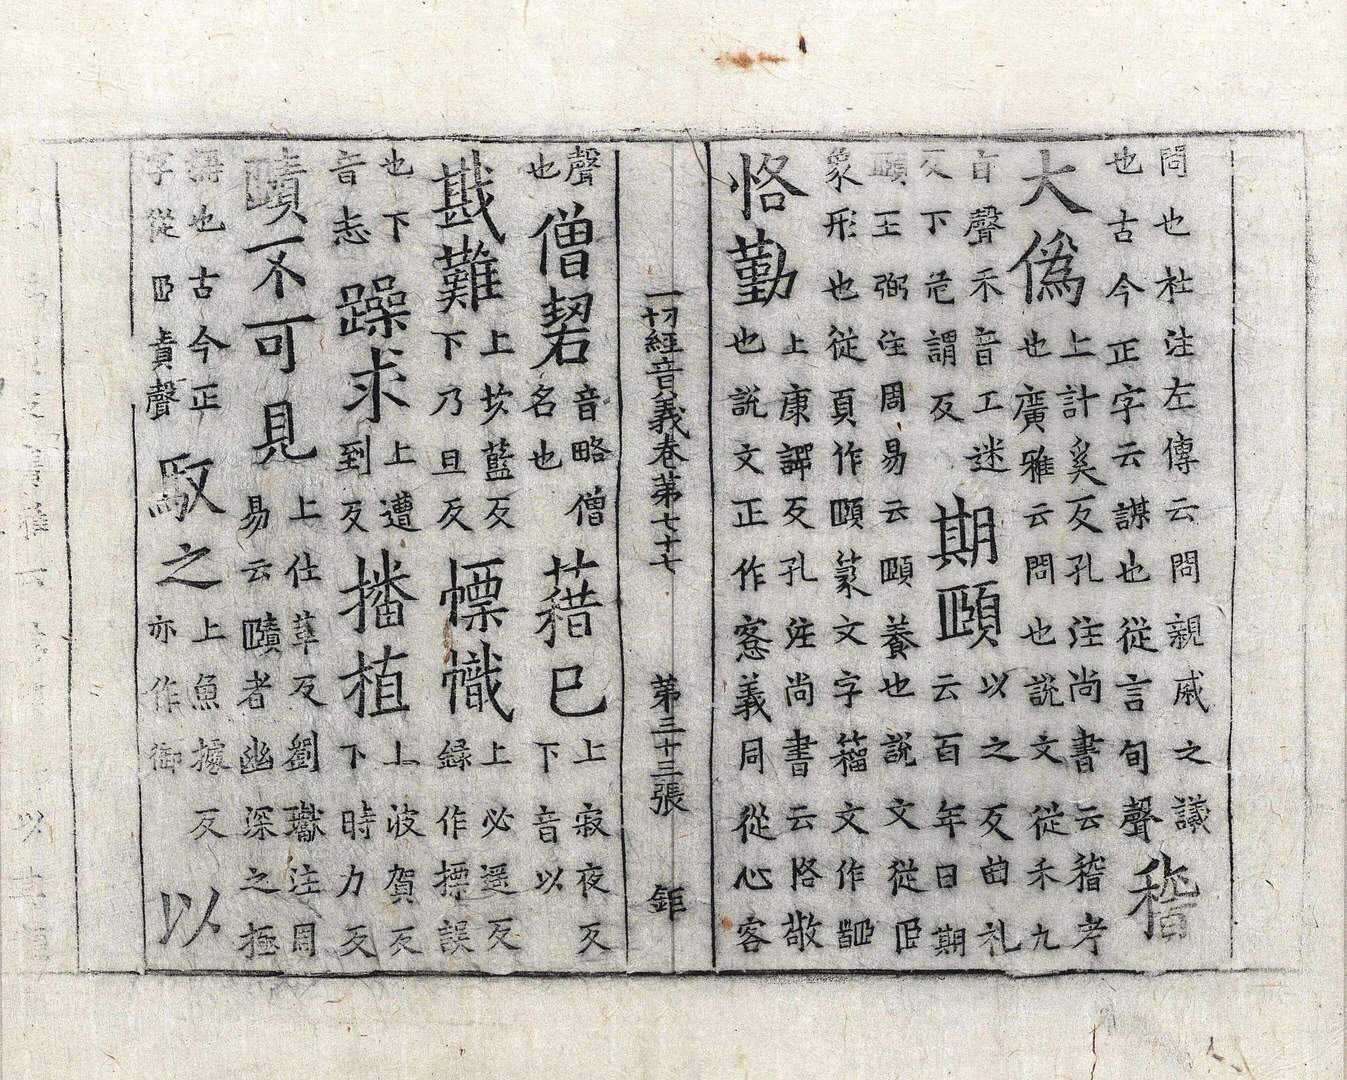 問也杜注左傳云問親戚之議
也古今正字云謀也從言旬聲
稽
大偽
上計奚反孔注尚書云稽考
也廣雅云問也說文從禾九
旨聲禾音工迷
反下危謂反
期頤
以之反曲礼
云百年日期
頤王弼注周易云頤養也說文從𦣞
象形也從頁作頤篆文字籀文作
恪勤
上康謣反孔注尚書云恪敬
也說文正作愙義同從心客
一切經音義卷第七十七 第三十三張 鉅
聲
也
僧䂮
音略僧
名也
藉已
上寂夜反
下音以
戡難
上坎藍反
下乃旦反
幖幟
上必遥反
録作摽誤
也下
音志
躁求
上遭
到反
播植
上波賀反
下時力反
賾不可見
上仕革反劉瓛注周
易云賾者幽深之極
也古今正
字從𦣞責聲
馭之
上魚據反
亦作御
以